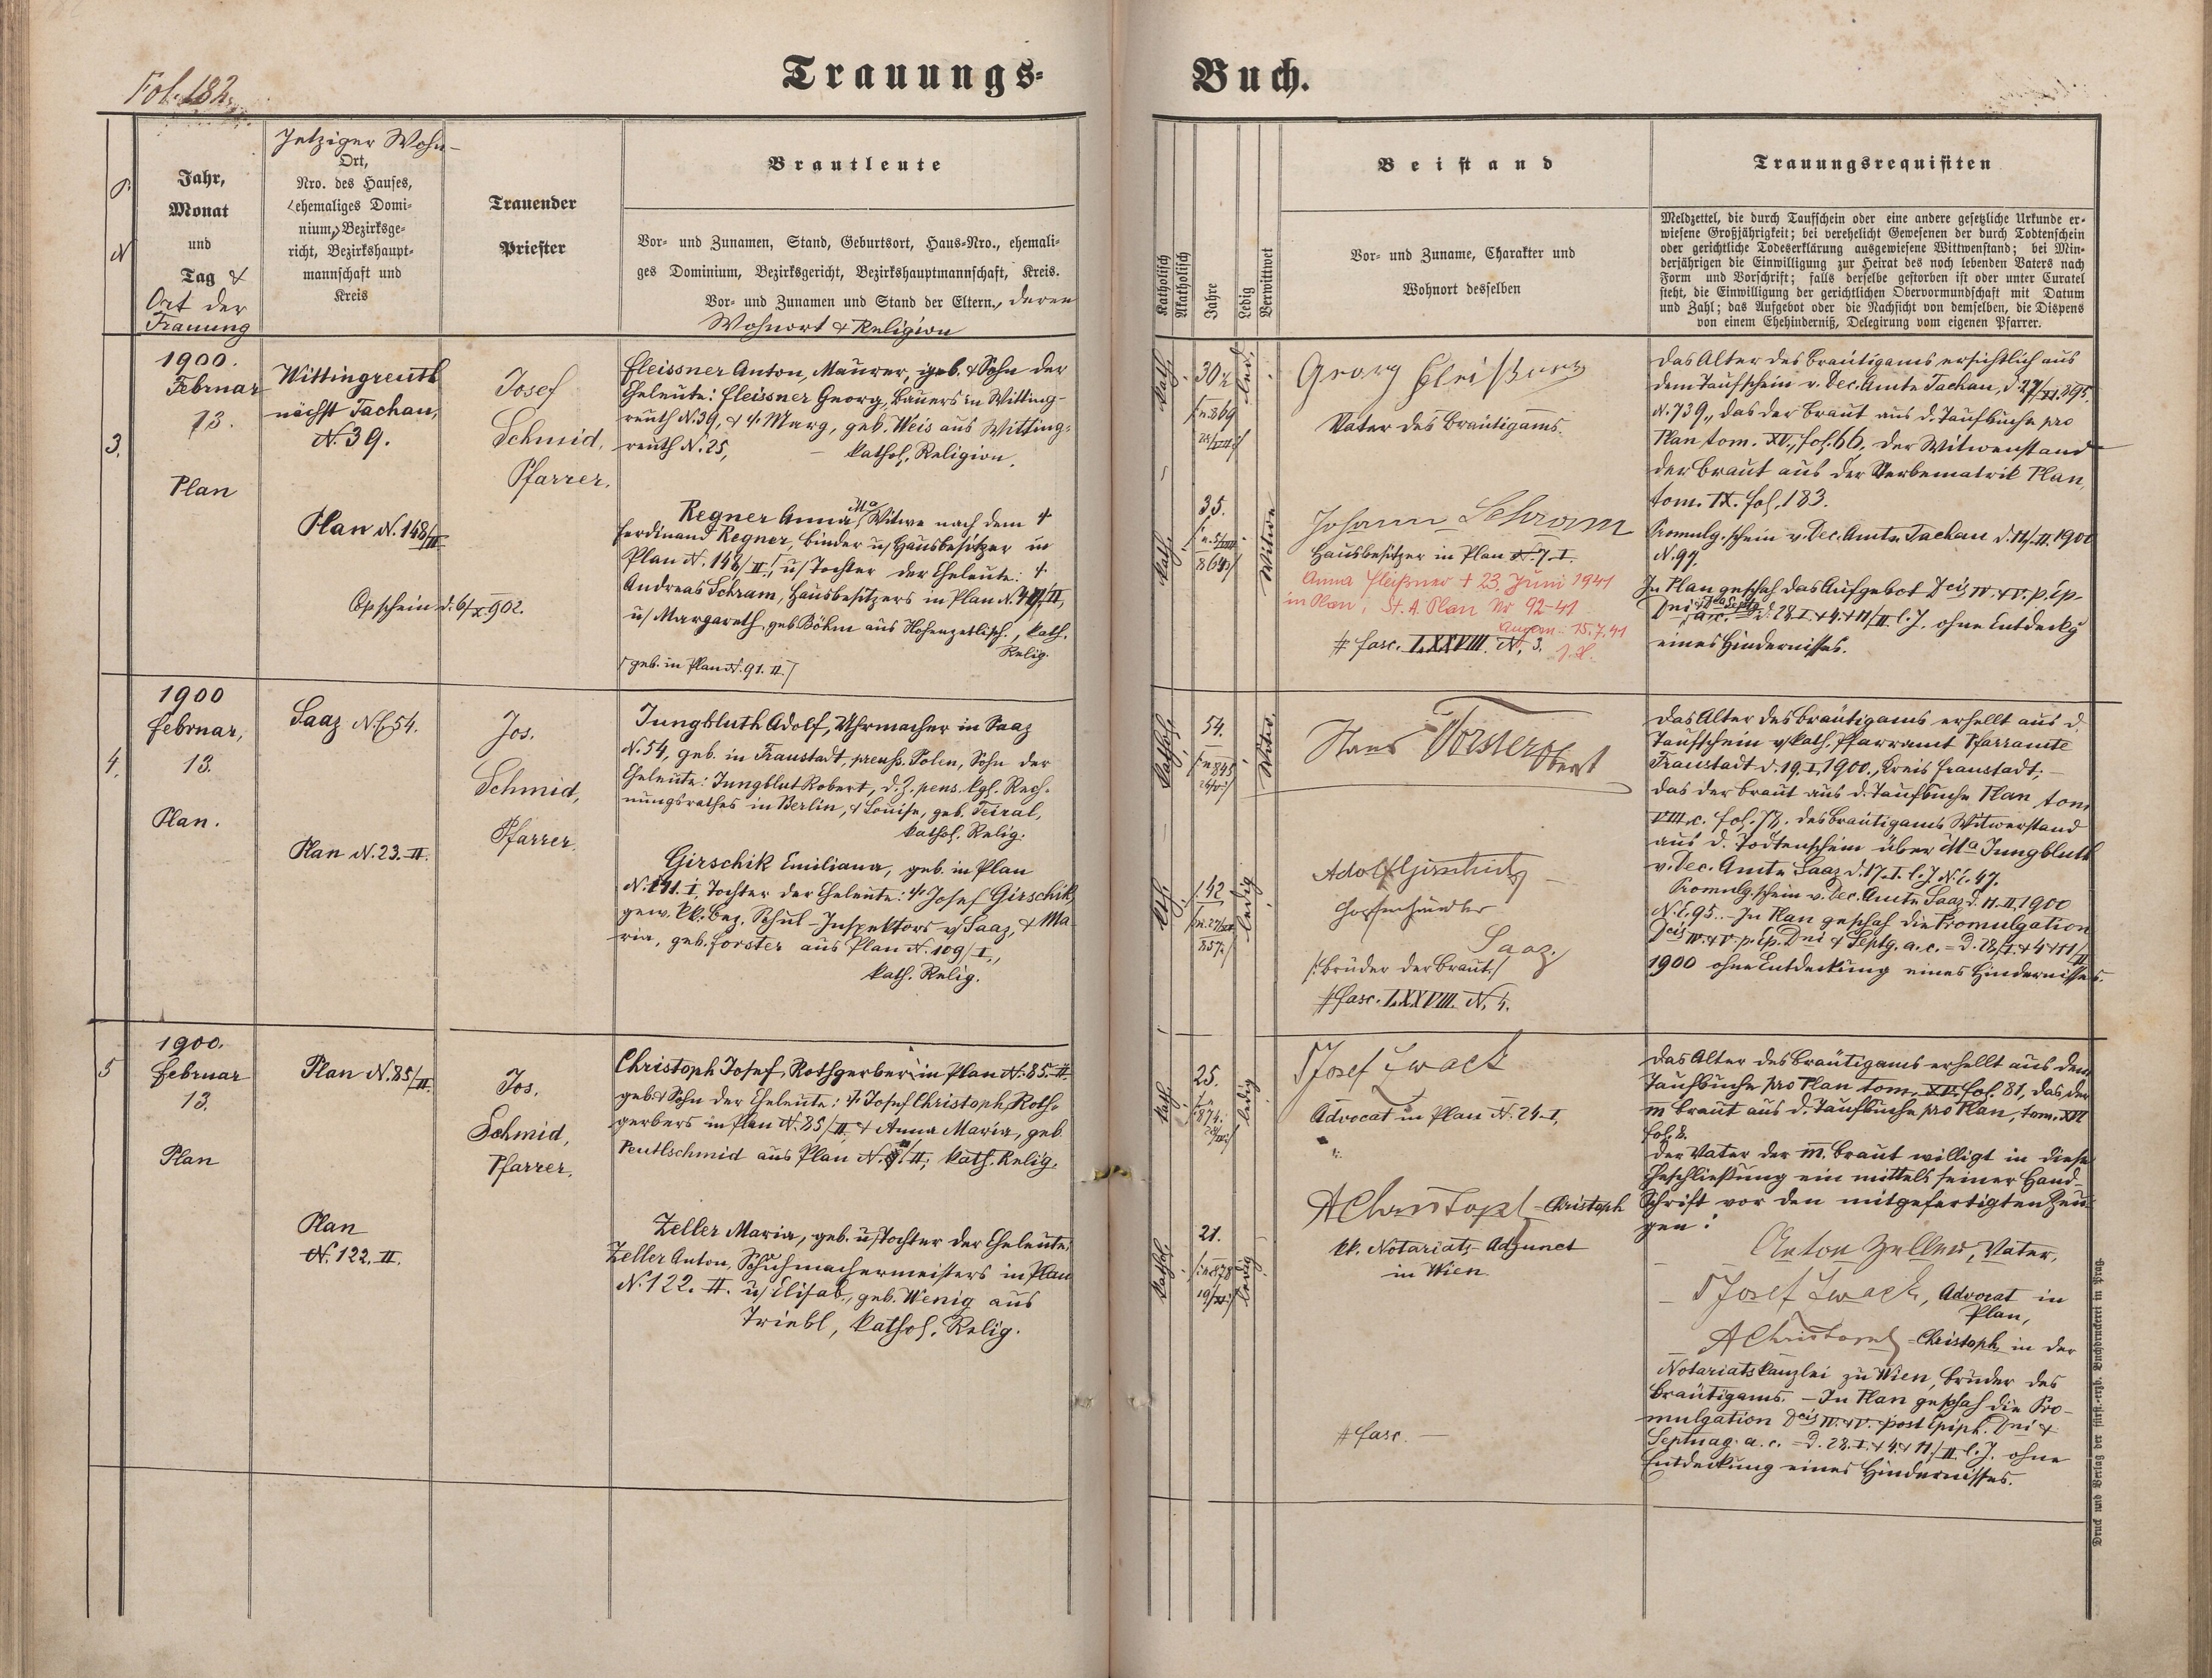 Fol. 182.
Trauungs- Buch.
N
Jahr,
Monat
und
Tag &
Ort der
Trauung
Jetziger Wohn-
Ort,
Nro. des Hauses,
ehemaliges Domi-
nium, Bezirksge-
richt, Bezirkshaupt-
mannschaft und
Kreis
Trauender
Priester
Brautleute
Vor- und Zunamen, Stand, Geburtsort, Haus-Nro., ehemali-
ges Dominium, Bezirksgericht, Bezirkshauptmannschaft, Kreis.
Vor- und Zunamen und Stand der Eltern, deren
Wohnort & Religion
Katholisch
Akatholisch
Jahre
Ledig
Verwittwet
Beistand
Vor- und Zuname, Charakter und
Wohnort desselben
Trauungsrequisiten
Meldzettel, die durch Taufschein oder eine andere gesetzliche Urkunde er-
wiesene Großjährigkeit; bei verehelicht Gewesenen der durch Todtenschein
oder gerichtliche Todeserklärung ausgewiesene Wittwenstand; bei Min-
derjährigen die Einwilligung zur Heirat des noch lebenden Vaters nach
Form und Vorschrift; falls derselbe gestorben ist oder unter Curatel
steht, die Einwilligung der gerichtlichen Obervormundschaft mit Datum
und Zahl; das Aufgebot oder die Nachsicht von demselben, die Dispens
von einem Ehehinderniß, Delegirung vom eigenen Pfarrer.
3.
1900.
Februar
13.
Plan
Wittingreuth
nächst Tachau,
N. 39.
Plan N. 148/II
Copschein d. 6/X. 902.
Josef
Schmid,
Pfarrer.
Fleissner Anton, Maurer, geb. & Sohn der
Eheleute: Fleissner Georg, Bauers in Witting-
reuth N. 39, & Marg, geb. Weis aus Witting-
reuth N. 25, – kathol. Religion.
Regner Anna Ma, Witwe nach dem †
Ferdinand Regner, Binder u/ Hausbesitzer in
Plan N. 148/II., u/ Tochter der Eheleute: †
Andreas Schram, Hausbesitzers in Plan N.
u/ Margareth, geb. Böhm aus Hohenzetlisch, kath.
Relig.
/geb. in Plan N. 91. II./
kath.
30
led.
kath.
35.
Witwe
Georg Fleißner
Vater des Bräutigams.
Johann Schram
Hausbesitzer in Plan N. 7. I.
Anna Fleißner † 23. Juni 1941
in Plan, St. A. Plan Nr 92-41
15.7.41
# fasc. LXXVIII. N. 3.
Das Alter des Bräutigams ersichtlich aus
dem Taufschein v. Dec. Amte Tachau, d. 27/XI. 895,
N. 739., das der Braut aus d. Taufbuche pro
Plan tom. XV., fol. 66, der Witwenstand
der Braut aus der Sterbematrik Plan,
tom. IX. fol. 183.
Promulg. schein v. Dec. Amte Tachau d. 11/II. 1900
N. 97.
In Plan geschah das Aufgebot Dcis IV. & V. p. Ep.
Dni & Septg. a. c. = d. 28. I. & 4. & 11/II. l. J. ohne Entdeckg
eines Hindernisses.
4.
1900
Februar,
13.
Plan.
Saaz N. C. 54.
Plan N. 23. II.
Jos.
Schmid,
Pfarrer.
Jungbluth Adolf, Uhrmacher in Saaz
N. 54, geb. in Fraustadt, preuß. Polen, Sohn der
Eheleute: Jungblut Robert, d. Z. pens. kgl. Rech-
nungsrathes in Berlin, & Louise, geb. Teiral,
kathol. Relig.
Girschik Emiliana, geb. in Plan
N. 141. I, Tochter der Eheleute: † Josef Girschik,
gew. k.k. Bez. Schul-Inspektors v/ Saaz, & Ma-
ria, geb. Forster aus Plan N. 109/I.,
kath. Relig.
kathol.
54.
Witw.
kth.
42
ledig
Hans Forster
Adolf Girschik
Hopfenhändler
Saaz.
/: Bruder der Braut :/
# fasc. LXXVIII. N. 4.
Das Alter des Bräutigams erhellt aus d.
Taufschein v/ kath. Pfarramt Pfarramte
Fraustadt d. 19. I. 1900., Kreis Fraustadt; –
das der Braut aus d. Taufbuche Plan tom.
VIII. c. fol. 78. des Bräutigams Witwerstand
aus d. Todtenschein über Ma Jungbluth
v. Dec. Amte Saaz d. 17. I. l. J. N. E. 47.
Promulg. schein v. Dec. Amte Saaz d. 11. II. 1900
N. E. 95. – In Plan geschah die Promulgation
Dcis IV. & V. p. Ep. Dni & Septg. a. c. = d. 28/I. & 4 & 11/II
1900 ohne Entdeckung eines Hindernisses.
5
1900.
Februar
13.
Plan
Plan N. 85/II.
Plan
N. 122. II.
Jos.
Schmid,
Pfarrer.
Christoph Josef, Rothgerber in Plan N. 85. II.
geb. & Sohn der Eheleute: † Josef Christoph, Roth-
gerbers in Plan N. 85/II, & Anna Maria, geb.
Peutlschmid aus Plan N. /II; kath. Relig.
Zeller Maria, geb. u/ Tochter der Eheleute:
Zeller Anton, Schuhmachermeisters in Plan
N. 122. II. u/ Elisab., geb. Wenig aus
Triebl, kathol. Relig.
kath.
25.
ledig
kathol.
21.
ledig
Josef Zwack
Advocat in Plan N. 24-I,
A Christoph – Christoph
kk. Notariats-Adjunct
in Wien
# fasc. —
Das Alter des Bräutigams erhellt aus dem
Taufbuche pro Plan tom. XV. fol. 81, das der
m. Braut aus d. Taufbuche pro Plan, tom. XVI
fol. 8.
Der Vater der m. Braut willigt in diese
Eheschließung ein mittels seiner Hand-
schrift vor den mitgefertigten Zeu-
gen:
Anton Zeller, Vater,
Josef Zwack, Advocat in
Plan,
A Christoph – Christoph, in der
Notariatskanzlei zu Wien, Bruder des
Bräutigams. – In Plan geschah die Pro-
mulgation Dcis IV. & V. post Epiph. Dni &
Septuag. a. c. = d. 28. I. & 4. & 11./II. l. J. ohne
Entdeckung eines Hindernisses.
Druck und Verlag der fürst.-erzb. Buchdruckerei in Prag.